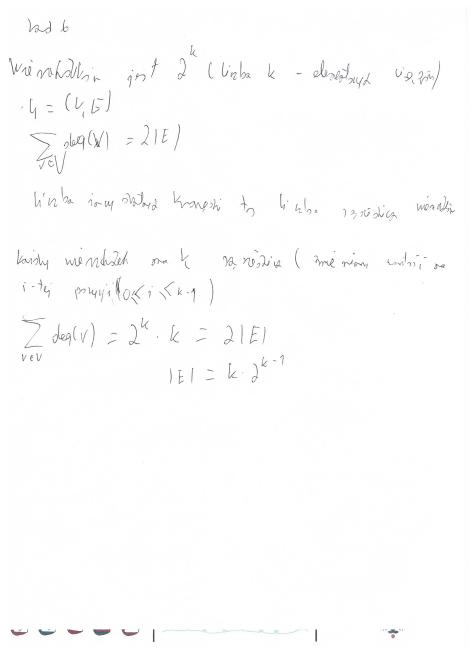 Zad 6
Wierzchołków jest 2^k (liczba k - elementowych ciągów)
G = (V, E)
∑ deg(v) = 2|E|
v∈V
liczba krawędzi to liczba sąsiadów
każdy wierzchołek ma k sąsiadów ( zmieniamy wartość na
i-tej pozycji (0 ≤ i ≤ k-1)
∑ deg(v) = 2^k · k = 2|E|
v∈V
|E| = k · 2^{k-1}